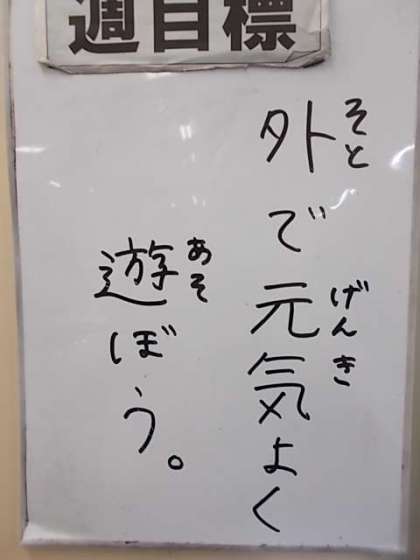 週目標
外で元気よく
そと
げんき
遊ぼう。
あそ